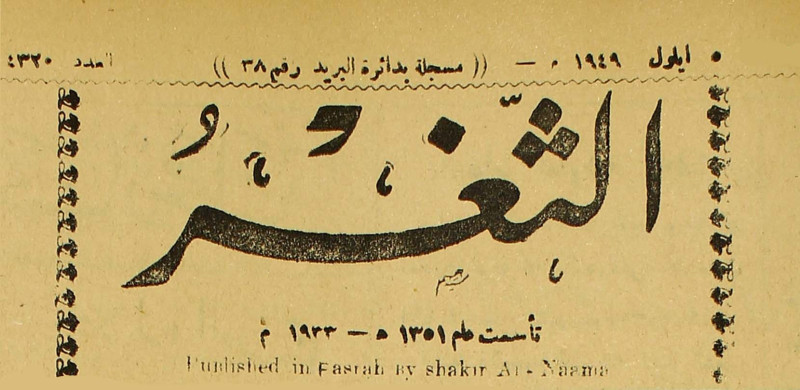 ٥ ايلول ١٩٤٩ م — (( مسجلة بدائرة البريد رقم ٣٨ )) العدد ٤٣٢٠
الثَّغْرُ
تأسست عام ١٣٥١ ه — ١٩٣٣ م
Published in Basrah By shakir Al - Naama